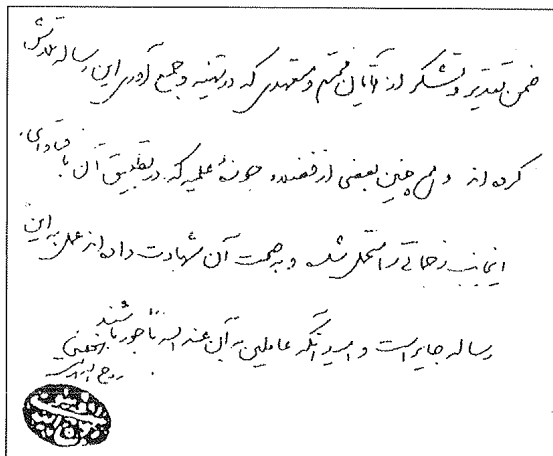 ضمن تقدیر و تشکر از آقایان محترم و متعهدی که در تهیه و جمع آوری این رساله تلاش
کرده اند و همچنین بعضی از فضلاء حوزهٔ علمیه که در تطبیق آن با فتاوای
اینجانب زحماتی را متحمل شده و به صحت آن شهادت داده اند عمل به این
رساله جایز است و امید آنکه عاملین به آن عند الله مأجور باشند
الخمینی
روح الله الموسوی